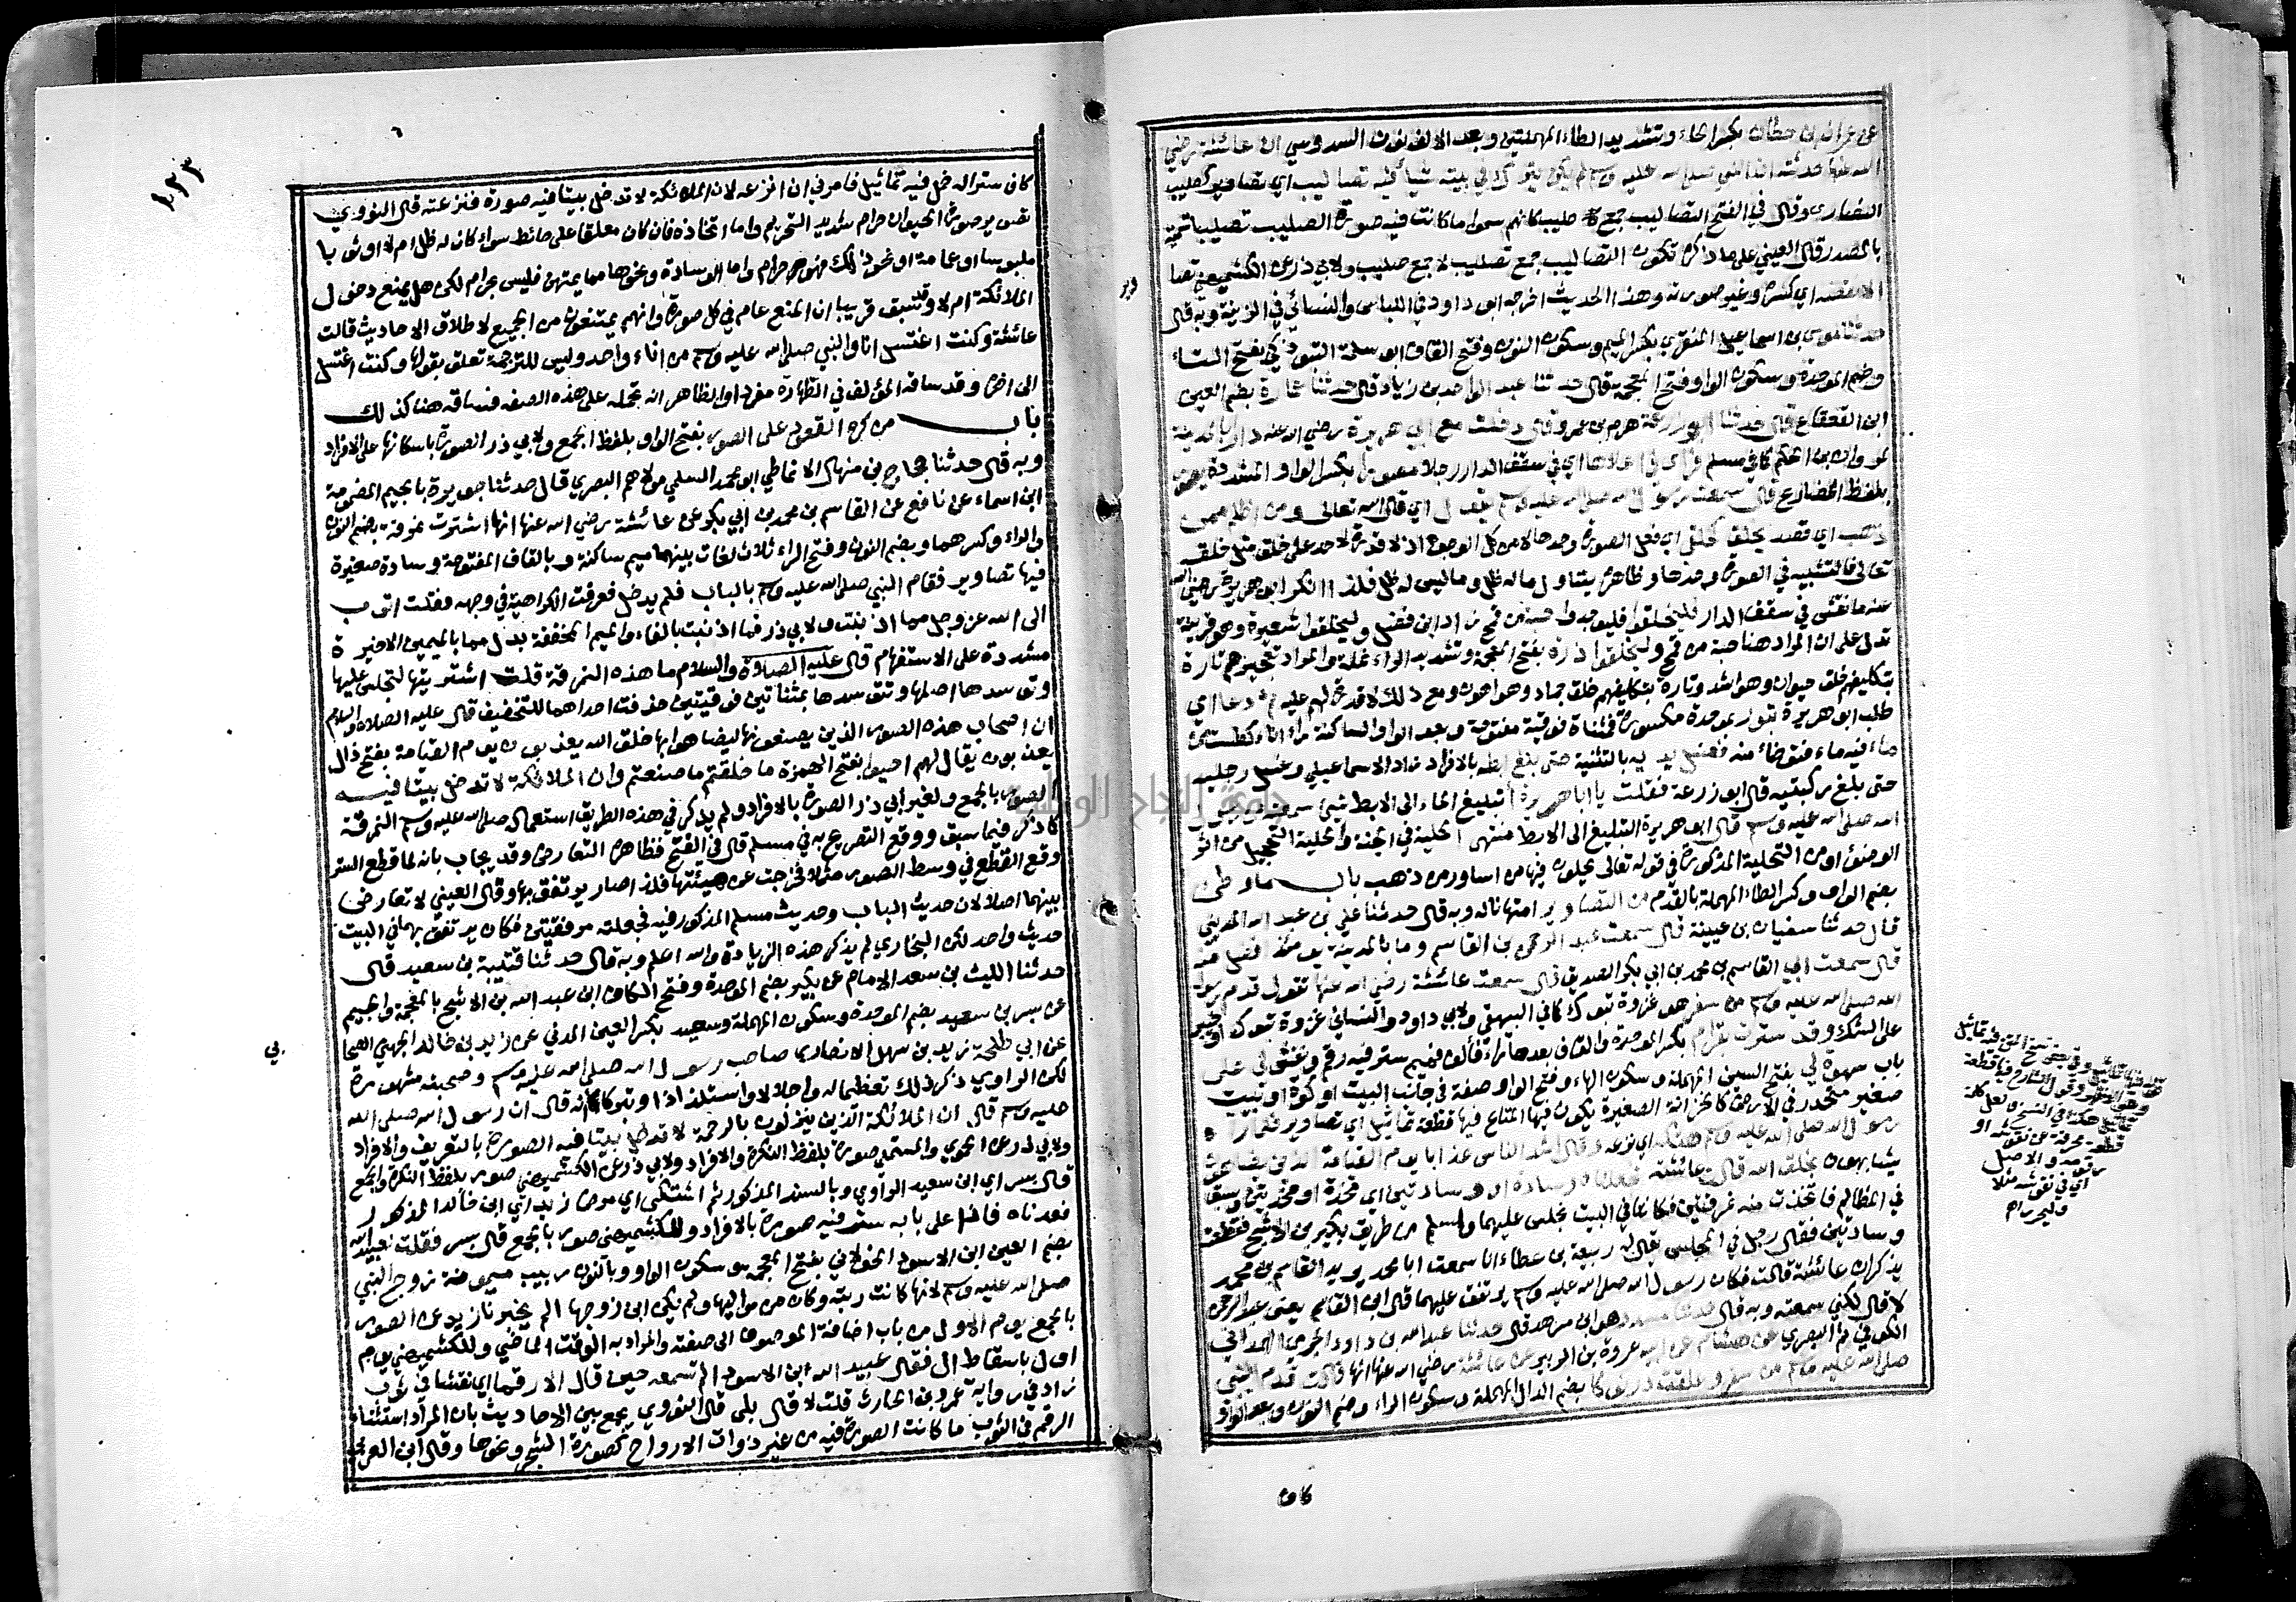 عن عمران بن حطان بكسر الحاء وتشديد الطاء المهملتين وبعد الالف نون السدوسي ان عائشة رضي
الله عنها حدثته ان النبي صلى الله عليه وسلم لم يكن يترك في بيته شيا فيه تصاليب اي تصاوير كصليب
النصارى وقال في الفتح التصاليب جمع صليب كانهم سموا ما كانت فيه صورة الصليب تصليبا تسمية
بالمصدر وقال العيني على ما ذكره تكون التصاليب جمع تصليب لا جمع صليب ولابي ذر عن الكشميهني تصا
وير
الا نقضه اي كسره وغير صورته وهذا الحديث اخرجه ابو داود في اللباس والنسائي في الزينة وبه قال
حدثنا موسى بن اسماعيل المنقري بكسر الميم وسكون النون وفتح القاف ابو سلمة التبوذكي بفتح التاء
وضم الموحدة وسكون الواو وفتح المعجمة قال حدثنا عبد الواحد بن زياد قال حدثنا عمارة بضم العين
ابن القعقاع قال حدثنا ابو زرعة هرم بن عمرو قال دخلت مع ابي هريرة رضي الله عنه دارا بالمدينة
لمروان بن الحكم كما في مسلم فراى في اعلاها اي في سقف الدار رجلا مصورا بكسر الواو المشددة يصور
بلفظ المضارع قال سمعت رسول الله صلى الله عليه وسلم يقول اي قال الله تعالى ومن اظلم ممن
ذهب اي قصد يخلق كخلقي اي فعل الصورة وحدها لا من كل الوجوه اذ لا قدرة لاحد على خلق مثل خلقه
تعالى فالتشبيه في الصورة وحدها وظاهره يتناول ما له ظل وما ليس له ظل فلذا انكر ابو هريرة رضي الله
عنه ما نقش في سقف الدار فليخلقوا فليوجدوا حبة من قمح زاد ابن فضيل وليخلقوا شعيرة وهو قرينة
تدل على ان المراد هنا حبة من قمح وليخلقوا ذرة بفتح المعجمة وتشديد الراء نملة والمراد تعجيزهم تارة
بتكليفهم خلق حيوان وهو اشد وتارة بتكليفهم خلق جماد وهو اهون ومع ذلك لا قدرة لهم عليه ثم دعا اي
طلب ابو هريرة بتور بموحدة مكسورة فمثناة فوقية مفتوحة وبعد الواو الساكنة راء اناء كطست من
ماء فيه ماء فتوضا منه فغسل يديه بالتثنية حتى بلغ ابطه بالافراد زاد الاسماعيلي وغسل رجليه
حتى بلغ ركبتيه قال ابو زرعة فقلت يا ابا هريرة أتبليغ الماء الى الابط شيء سمعته من رسول
الله صلى الله عليه وسلم قال ابو هريرة التبليغ الى الابط منتهى الحلية في الجنة والحلية التحجيل من اثر
الوضوء او من التحلية المذكورة في قوله تعالى يحلون فيها من اساور من ذهب باب ما وطئ
بضم الواو وكسر الطاء المهملة بالقدم من التصاوير امتهانا له وبه قال حدثنا علي بن عبد الله المديني
قال حدثنا سفيان بن عيينة قال سمعت عبد الرحمن بن القاسم وما بالمدينة يومئذ افضل منه
قال سمعت ابي القاسم بن محمد بن ابي بكر الصديق قال سمعت عائشة رضي الله عنها تقول قدم رسول
الله صلى الله عليه وسلم من سفر هو غزوة تبوك كما في البيهقي ولابي داود والنسائي غزوة تبوك او خيبر
على الشك وقد سترت بقرام بكسر الموحدة والقاف بعدها راء فألف فميم ستر فيه رقم ونقش لي على
باب سهوة لي بفتح السين المهملة وسكون الهاء وفتح الواو صفة في جانب البيت او كوة او بيت
صغير منحدر في الارض كالخزانة الصغيرة يكون فيها المتاع فيها قطعة تماثيل اي تصاوير فلما راه
رسول الله صلى الله عليه وسلم هتكه اي نزعه وقال اشد الناس عذابا يوم القيامة الذين يضاهون
يشابهون بخلق الله قالت عائشة فجعلناه وسادة او وسادتين اي مخدة او مخدتين وسبق
في المظالم فاتخذت منه نمرقتين فكانتا في البيت يجلس عليهما ولمسلم من طريق بكير بن الاشج فقطعته
وسادتين فقال رجل في المجلس يقال له ربيعة بن عطاء انا سمعت ابا محمد يريد القاسم بن محمد
يذكر ان عائشة قالت فكان رسول الله صلى الله عليه وسلم يرتفق عليهما قال ابن القاسم يعني عبد الرحمن
لا قال لكني سمعته وبه قال حدثنا مسدد هو ابن مسرهد قال حدثنا عبد الله بن داود الخريبي الهمداني
الكوفي ثم البصري عن هشام عن ابيه عروة بن الزبير عن عائشة رضي الله عنها انها قالت قدم النبي
صلى الله عليه وسلم من سفر وعلقت درنوكا بضم الدال المهملة وسكون الراء وضم النون وبعد الواو
كاف
كاف ستر اله خمل فيه تماثيل فامرني ان انزعه لان الملائكة لا تدخل بيتا فيه صورة فنزعته قال النووي
تصوير صورة الحيوان حرام شديد التحريم واما اتخاذه فان كان معلقا على حائط سواء كان له ظل ام لا او ثوبا
ملبوسا او عمامة او نحو ذلك فهو حرام واما الوسادة ونحوها مما يمتهن فليس بحرام لكن هل يمنع دخول
الملائكة ام لا وقد سبق قريبا ان المنع عام في كل صورة وانهم يمتنعون من الجميع لاطلاق الاحاديث قالت
عائشة وكنت اغتسل انا والنبي صلى الله عليه وسلم من اناء واحد وليس للترجمة تعلق بقولها وكنت اغتسل
الى اخره وقد ساقه المؤلف في الطهارة مفردا والظاهر انه تحمله على هذه الصفه فساقه هنا كذلك
باب من كره القعود على الصور بفتح الواو بلفظ الجمع ولابي ذر الصورة باسكانها على الافراد
وبه قال حدثنا حجاج بن منهال الانماطي ابو محمد السلمي مولاهم البصري قال حدثنا جويرية بالجيم المضمومة
ابن اسماء عن نافع عن القاسم بن محمد بن ابي بكر عن عائشة رضي الله عنها انها اشترت نمرقة بضم النون
والراء وكسرهما وبضم النون وفتح الراء ثلاث لغات بينهما ميم ساكنة وبالقاف المفتوحة وسادة صغيرة
فيها تصاوير فقام النبي صلى الله عليه وسلم بالباب فلم يدخل فعرفت الكراهية في وجهه فقلت اتوب
الى الله عز وجل مما اذنبت ولابي ذر فما اذنبت بالفاء والميم المخففة بدل مما بالميمين الاخيرة
مشددة على الاستفهام قال عليه الصلاة والسلام ما هذه النمرقة قلت اشتريتها لتجلس عليها
وتوسدها اصلها وتتوسدها بمثناتين فوقيتين حذفت احداهما للتخفيف قال عليه الصلاة والسلام
ان اصحاب هذه الصور الذين يصنعونها ليضاهوا بها خلق الله يعذبون يوم القيامة بفتح ذال
يعذبون يقال لهم احيوا بفتح الهمزة ما خلقتم ما صنعتم وان الملائكة لا تدخل بيتا فيه
الصور بالجمع ولغير ابي ذر الصورة بالافراد ولم يذكر في هذه الطريق استعمال صلى الله عليه وسلم النمرقة
كما ذكر فيما سبق ووقع التصريح به في مسلم قال في الفتح فظاهره التعارض وقد يجاب بانه لما قطع الستر
وقع القطع في وسط الصور مثلا فخرجت عن هيئتها فلذا صار يرتفق بها وقال العيني لا تعارض
بينهما اصلا لان حديث الباب وحديث مسلم المذكور فيه فجعلته مرفقتين فكان يرتفق بهما في البيت
حديث واحد لكن البخاري لم يذكر هذه الزيادة والله اعلم وبه قال حدثنا قتيبة بن سعيد قال
حدثنا الليث بن سعد الامام عن بكير بضم الموحدة وفتح الكاف ابن عبد الله بن الاشج بالمعجمة والجيم
عن بسر بن سعيد بضم الموحدة وسكون المهملة وسعيد بكسر العين المدني عن زيد بن خالد الجهني الصحا
بي
عن ابي طلحة زيد بن سهل الانصاري صاحب رسول الله صلى الله عليه وسلم وصحبته مشهورة
لكن الراوي ذكر ذلك تعظيما له واجلالا واستلذاذا وتبركا انه قال ان رسول الله صلى الله
عليه وسلم قال ان الملائكة الذين ينزلون بالرحمة لا تدخل بيتا فيه الصورة بالتعريف والافراد
ولابي ذر عن الحموي والمستملي صورة بلفظ النكرة والافراد ولابي ذر عن الكشميهني صور بلفظ النكرة والجمع
قال بسر اي ابن سعيد الراوي وبالسند المذكور ثم اشتكى اي مرض زيد اي ابن خالد المذكور
فعدناه فاذا على بابه ستر فيه صورة بالافراد وللكشميهني صور بالجمع قال بسر فقلت لعبيد الله
بضم العين ابن الاسود الخولاني بفتح المعجمة وسكون الواو وبالنون ربيب ميمونة زوج النبي
صلى الله عليه وسلم لانها كانت ربته وكان من مواليها ولم يكن ابن زوجها الم يخبرنا زيد عن الصور
بالجمع يوم الاول من باب اضافة الموصوف الى صفته والمراد به الوقت الماضي وللكشميهني يوم
اول باسقاط ال فقال عبيد الله ابن الاسود الم تسمعه حين قال الا رقما اي نقشا في ثوب
زاد في رواية عمرو بن الحارث قلت لا قال بلى قال النووي يجمع بين الاحاديث بان المراد استثناء
الرقم في الثوب ما كانت الصورة فيه من غير ذوات الارواح كصورة الشجر ونحوها وقال ابن العربي